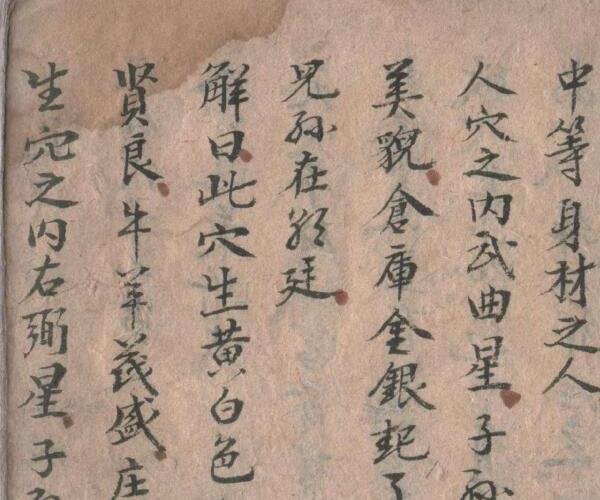 中等身材之人
人穴之内武曲星子孫
美貌倉庫金銀起
兒孫在朝廷
解曰此穴生黄白色
贤良牛羊茂盛庄
生穴之内右弼星子